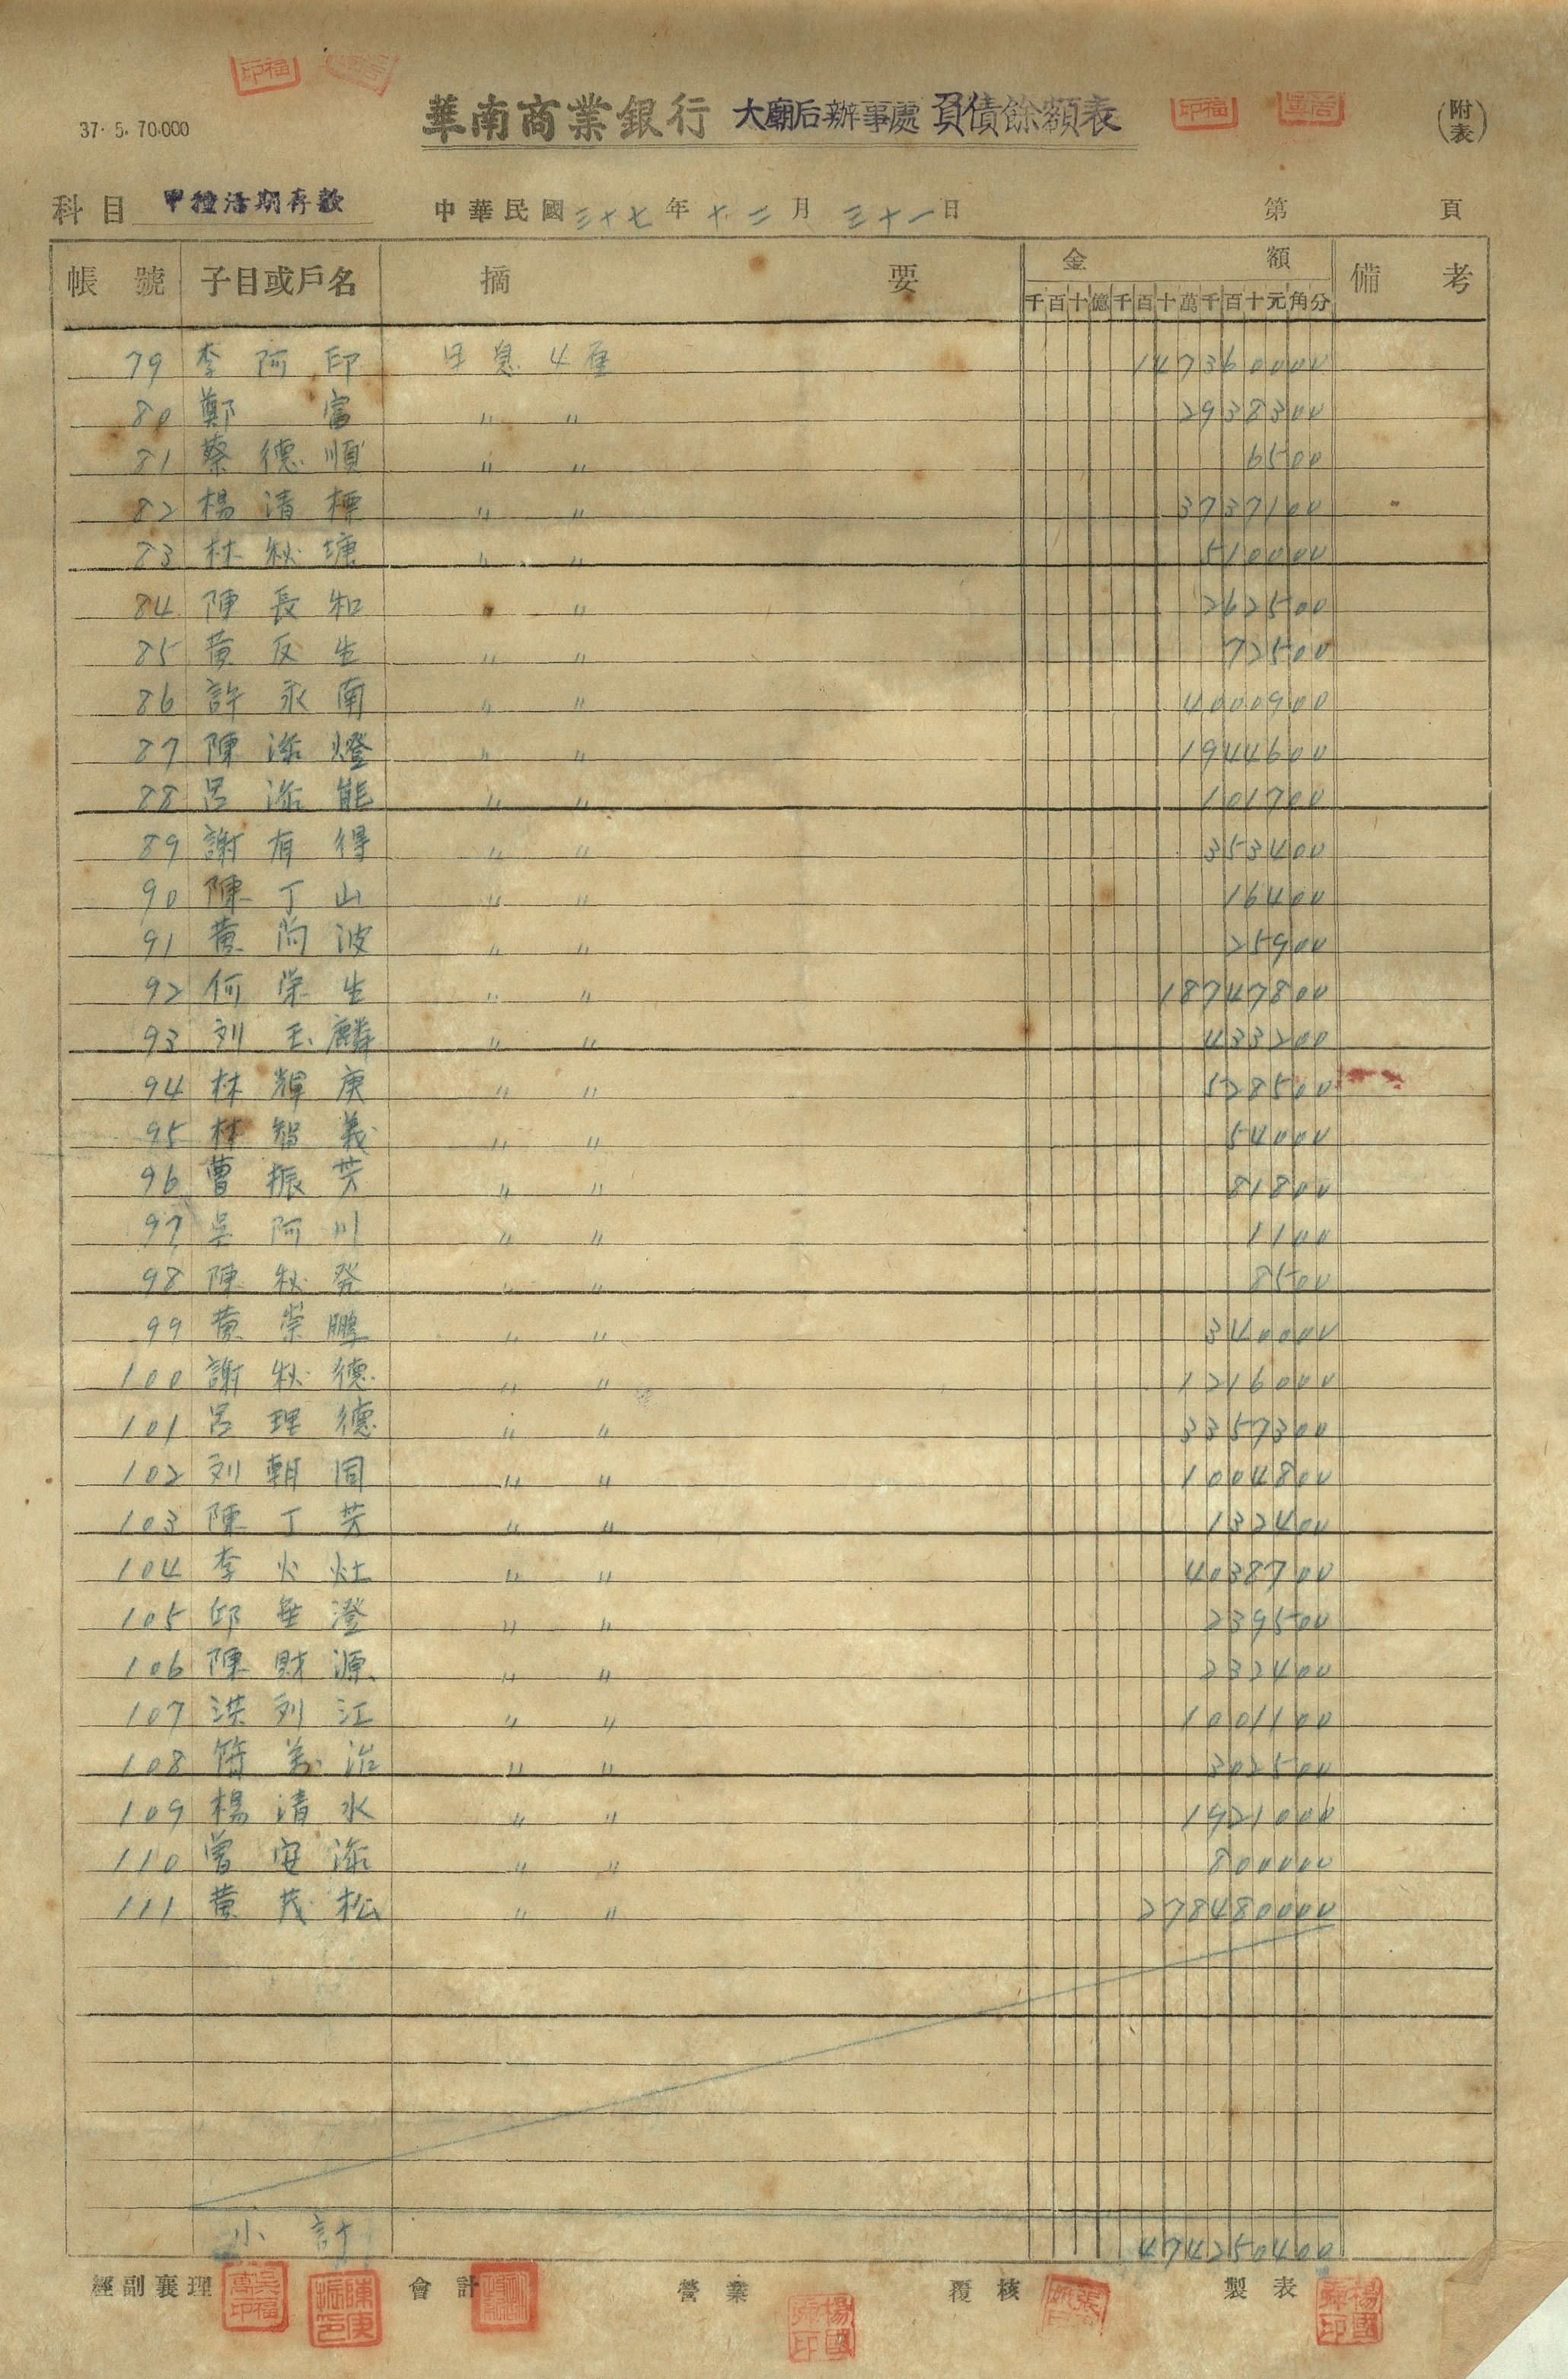 37. 5. 70.000
華南商業銀行 大廟后辦事處 負債餘額表
(附表)
科目 甲種活期存款 中華民國三十七年十二月三十一日 第 頁
帳號 子目或戶名 摘要 金額 備考
千百十億千百十萬千百十元角分
79 李阿印 日息4厘 147360000
80 鄭富 〃 〃 2938300
81 蔡德順 〃 〃 6500
82 楊清標 〃 〃 3737100
83 林秋塘 〃 〃 510000
84 陳長和 〃 〃 262500
85 黃反生 〃 〃 72500
86 許永南 〃 〃 4000900
87 陳添燈 〃 〃 1944600
88 呂添能 〃 〃 101700
89 謝有得 〃 〃 353400
90 陳丁山 〃 〃 16400
91 黃阿波 〃 〃 25900
92 何荣生 〃 〃 18747800
93 刘玉麟 〃 〃 433200
94 林輝庚 〃 〃 528500
95 林智義 〃 〃 54000
96 曹振芳 〃 〃 81800
97 吳阿川 〃 〃 1100
98 陳秋發 〃 〃 8500
99 黃崇鵬 〃 〃 340000
100 謝秋德 〃 〃 1216000
101 呂理德 〃 〃 3357300
102 刘朝同 〃 〃 1004800
103 陳丁芳 〃 〃 132400
104 李火灶 〃 〃 4038700
105 邱垂澄 〃 〃 239500
106 陳財源 〃 〃 232400
107 洪列江 〃 〃 1001100
108 簡美治 〃 〃 302500
109 楊清水 〃 〃 1921000
110 曾安添 〃 〃 800000
111 黃茂松 〃 〃 278480000
小計 474250400
經副襄理 會計 營業 覆核 製表